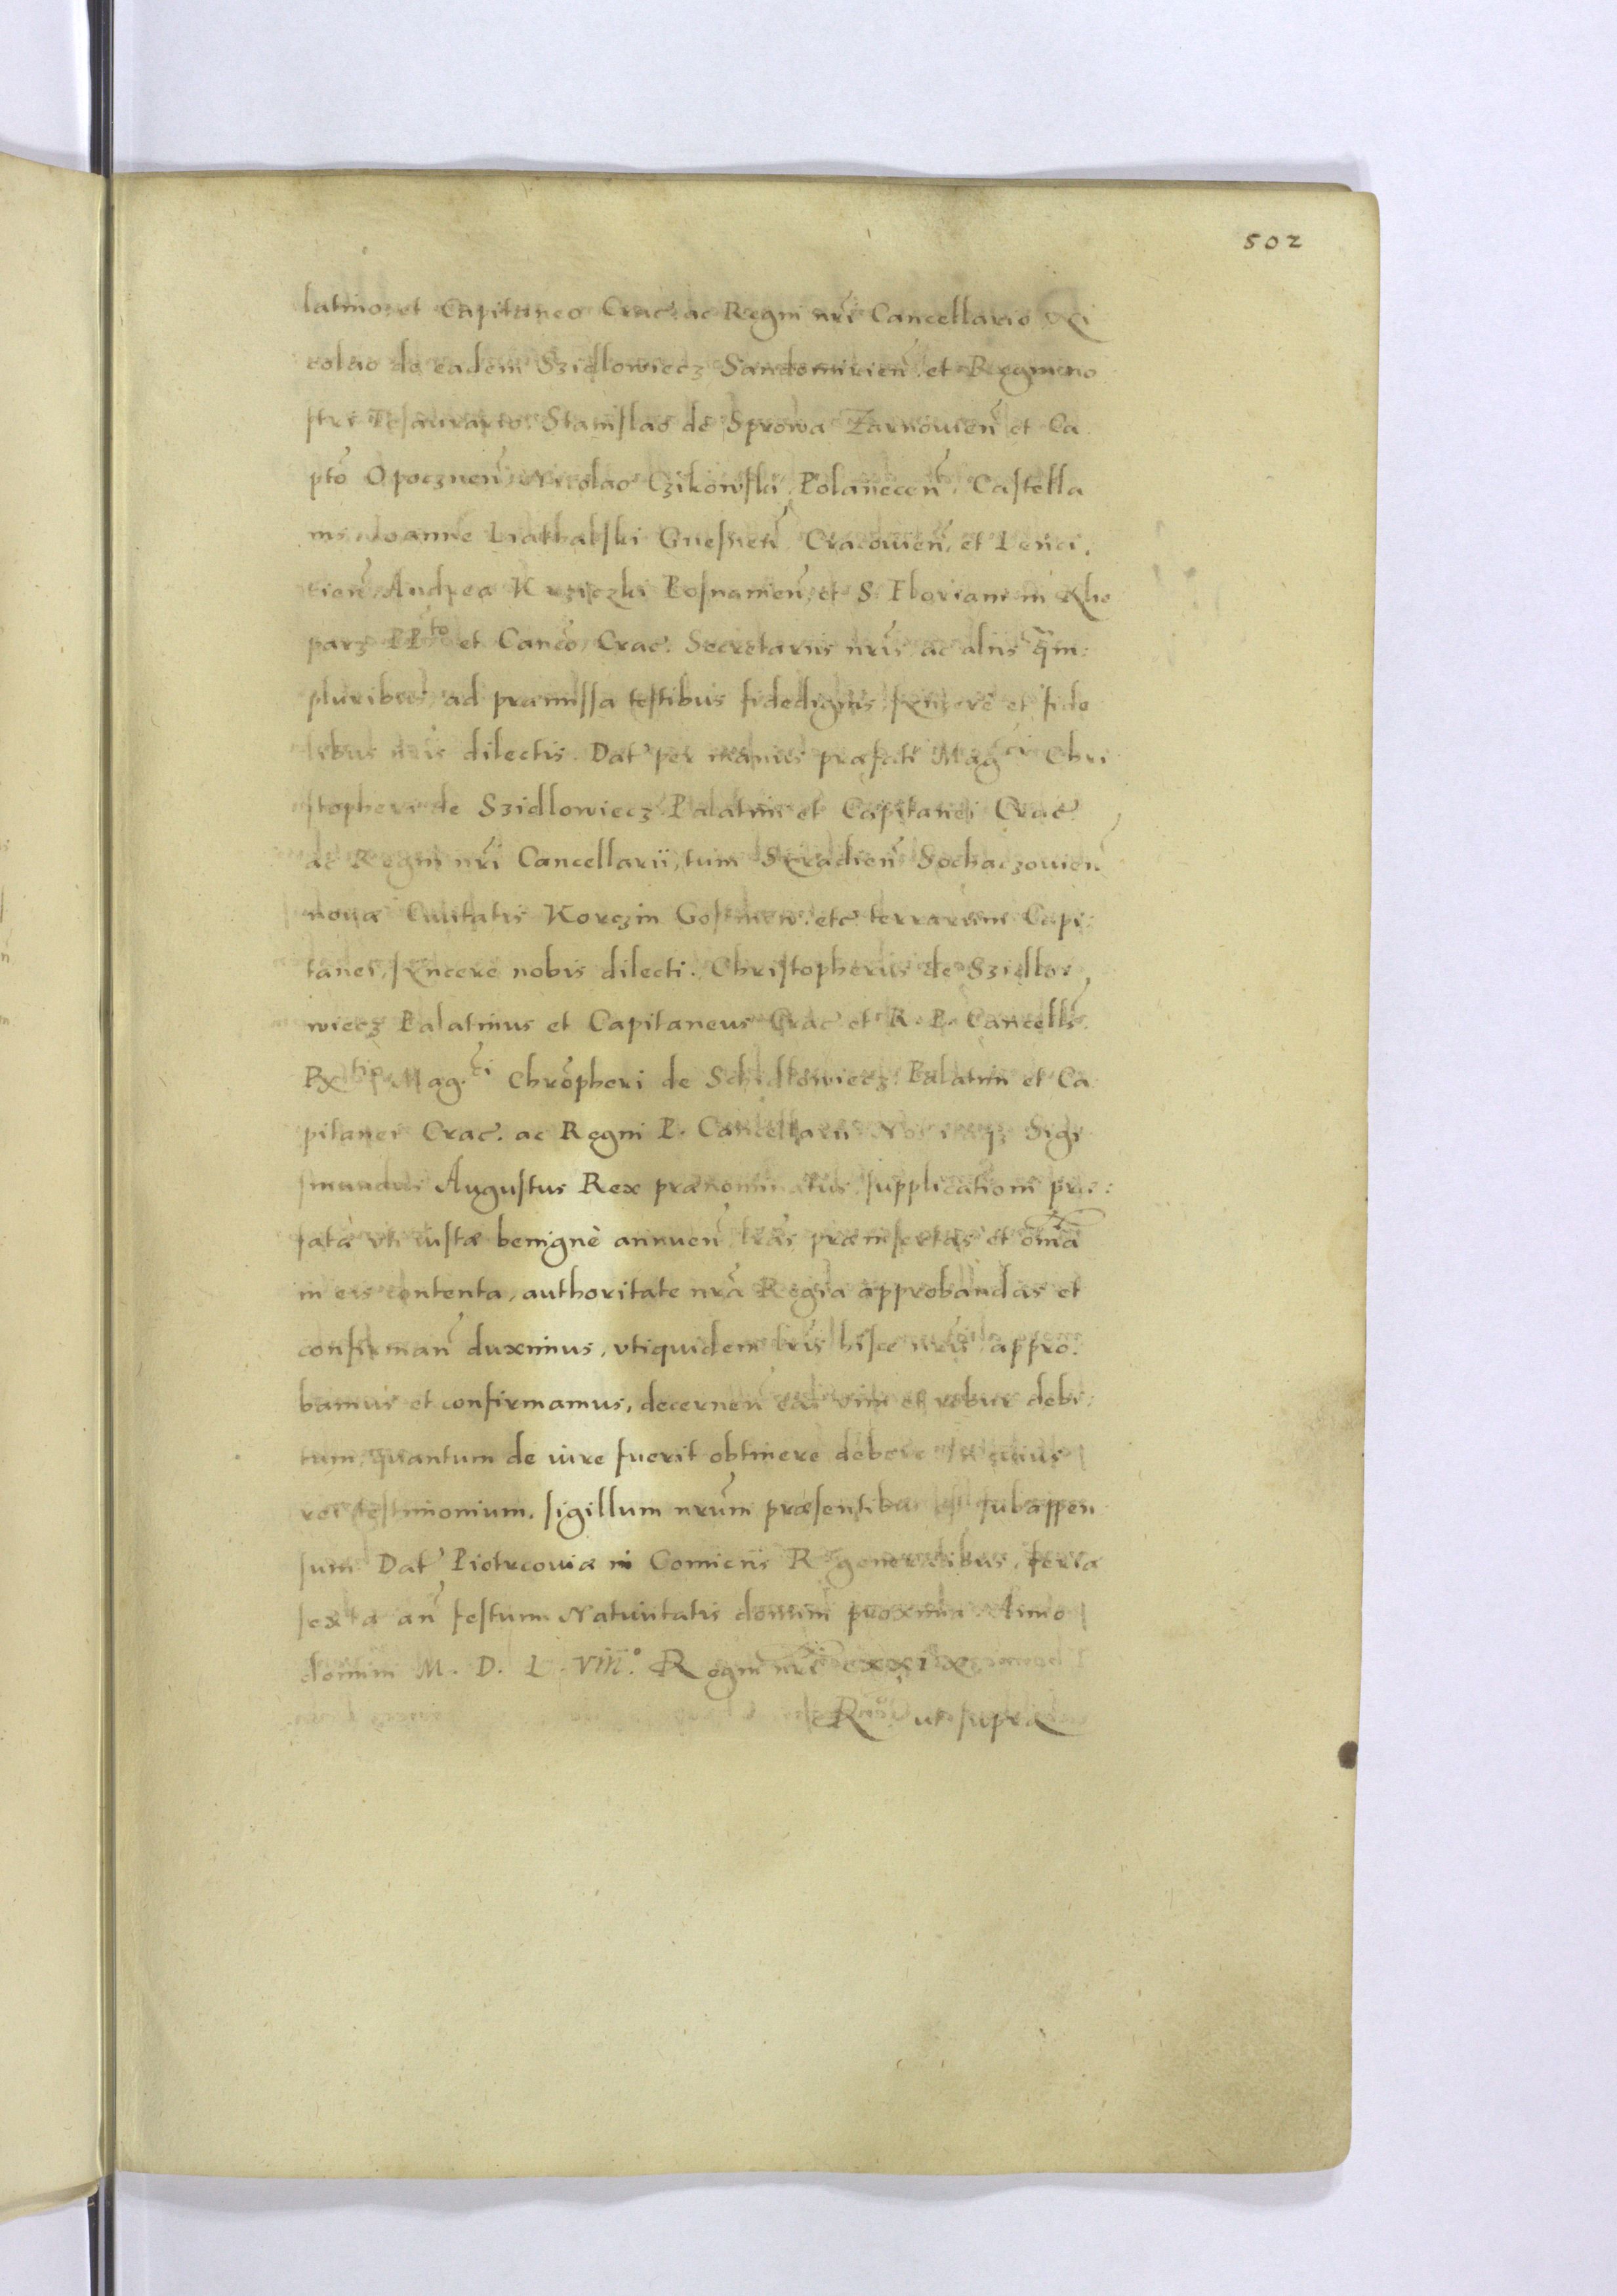 502
latino et Capitaneo Crac. ac Regni nri Cancellario Ni
colao de eadem Szidlowiecz Sandomirien. et Regni no
stri Tesaurario. Stanislao de Sprowa Zarnouien et Ca
pto Opocznen, Nicolao Czikowski, Polanecen, Castella
nis, Joanne Liathalski Gnesnen, Cracouien, et Lenci,
cien, Andrea Krziczki Posnanien, et S. Floriani in Khle
parz PPto et Canco, Crac. Secretariis nris, ac aliis qm:
pluribus, ad præmissa testibus fidedignis, sÿncere et fide
libus nris dilectis. Dat per manus præfati Magci Chri
stopheri de Szidlowiecz Palatini et Capitanei Crac.
ac Regni nri Cancellarii, tum Siradien Sochaczouien
nouæ Ciuitatis Korczin Gostinen. etc terrarum Capi:
tanei, sÿncere nobis dilecti. Christopherus de Szidlo
wiecz Palatinus et Capitaneus Crac et R. P. Cancells.
Rtio Mag.ci Chropheri de Schidlowiecz Palatini et Ca
pitanei Crac. ac Regni P. Cancellarii. Nos itaqz Sigi
smundus Augustus Rex prænominatus, supplicationi præ:
fatæ vti iustæ benignè annuen, lras præinsertas et oma
in eis contenta, authoritate nra Regia approbandas et
confirman duximus, vtiquidem lris hisce nris appro:
bamus et confirmamus, decernen eas vim et robur debi:
tum, quantum de iure fuerit obtinere debere. In cuius
rei testimonium, sigillum nrum præsentibus est subappen
sum Dat Piotrcouiæ in Comiciis R generalibus, feria
sexta an festum Natiuitatis domini proxima. Anno
domini M. D. L. VIII.o Regni nri xxix
Rnō ut supra